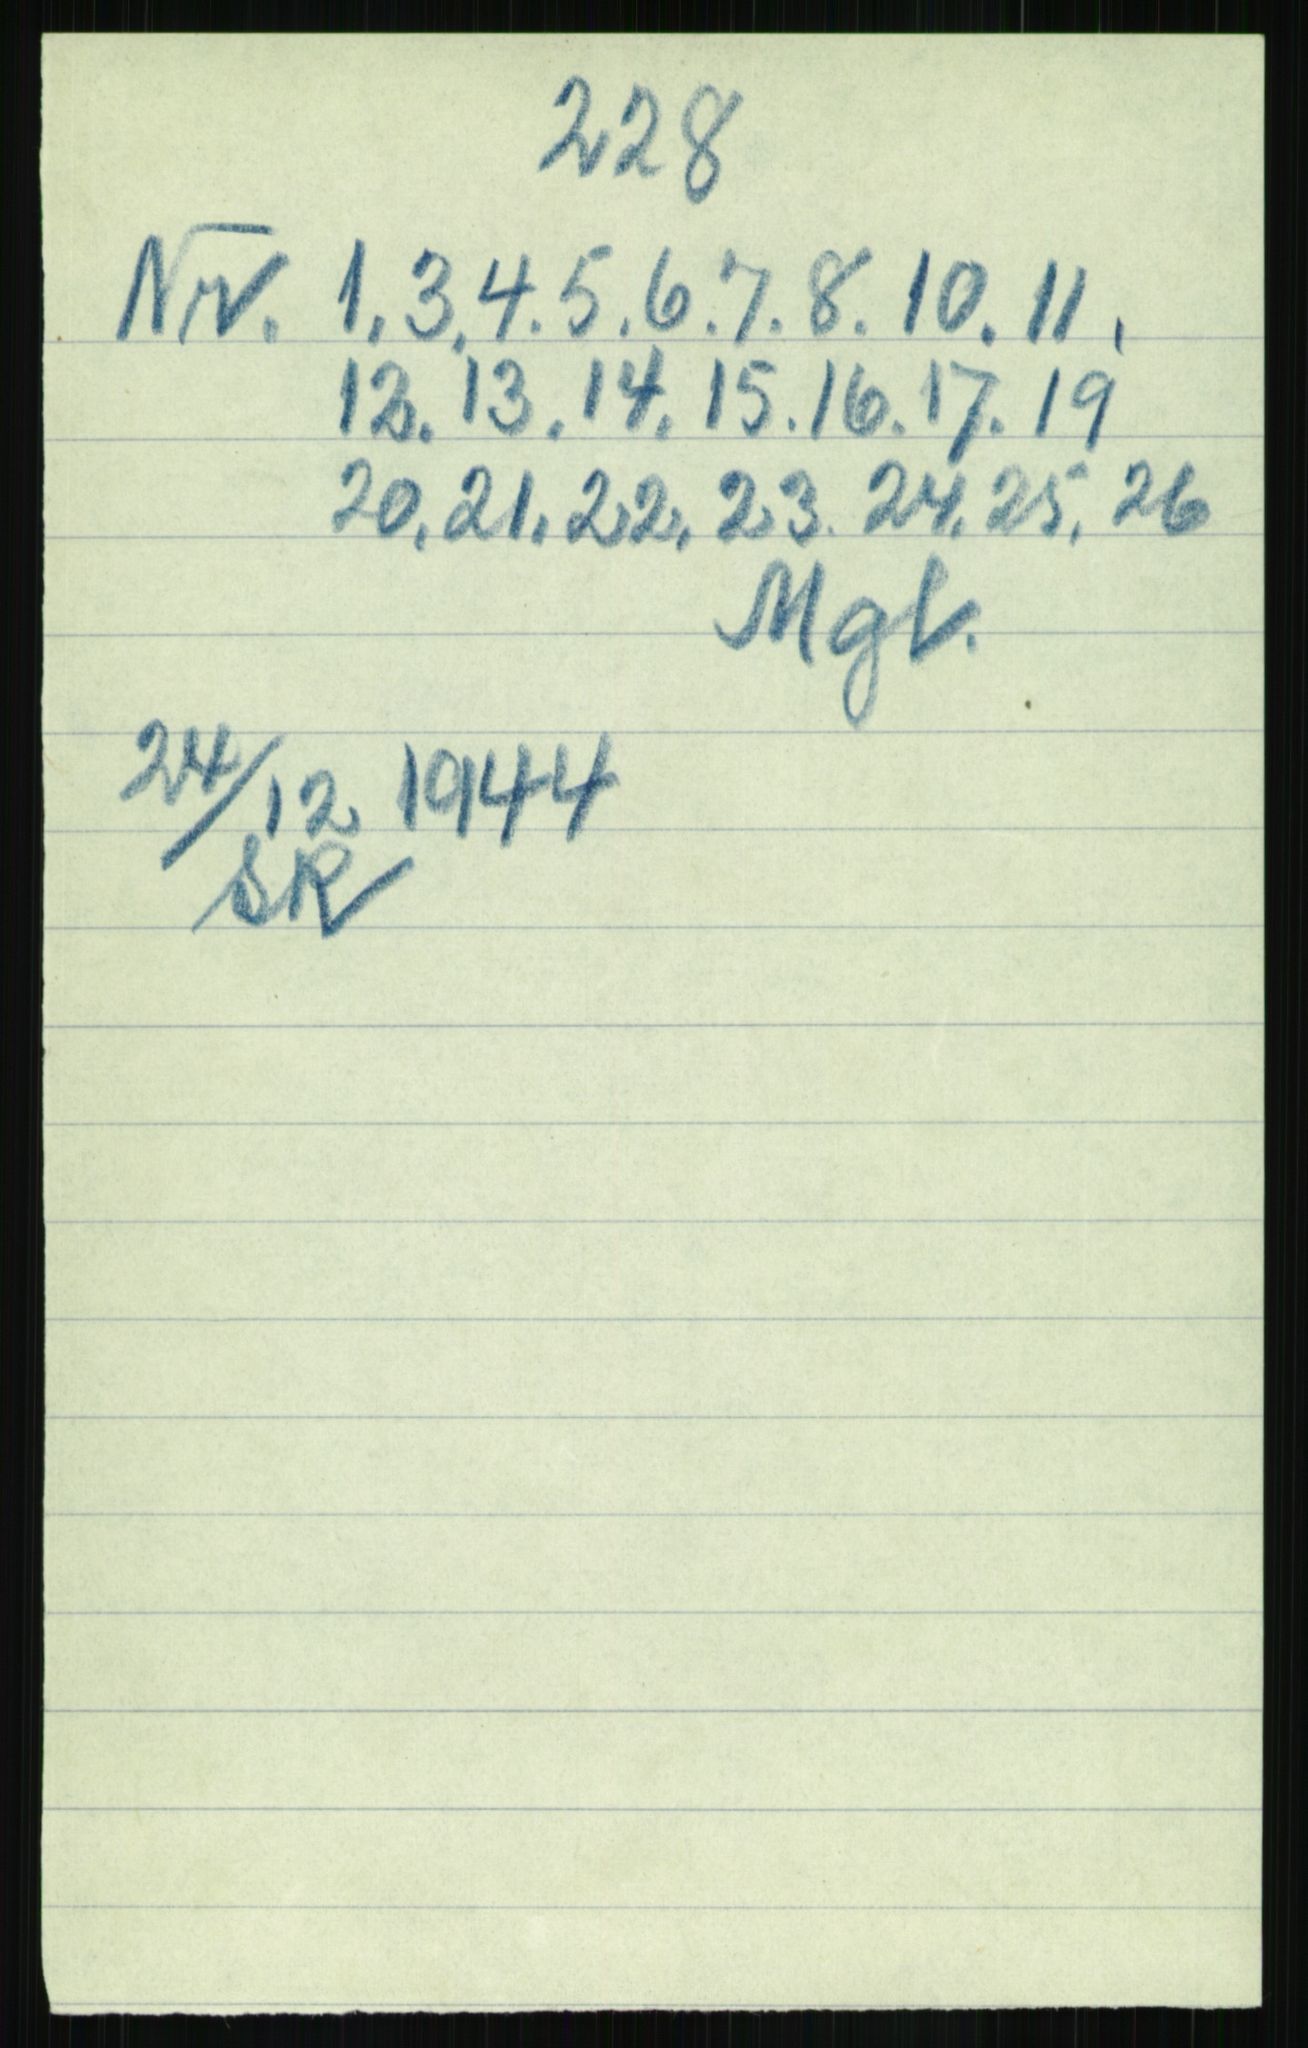 228
Nr. 1.3.4.5.6.7.8.10.11.
12.13.14.15.16.17.19
20.21.22.23.24.25.26
Mgl.
24/12 1944
SR